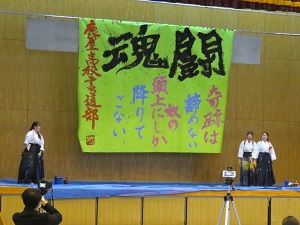 闘魂
奇跡は
諦めない
奴の
頭上にしか
降りて
こない
鹿屋高校書道部